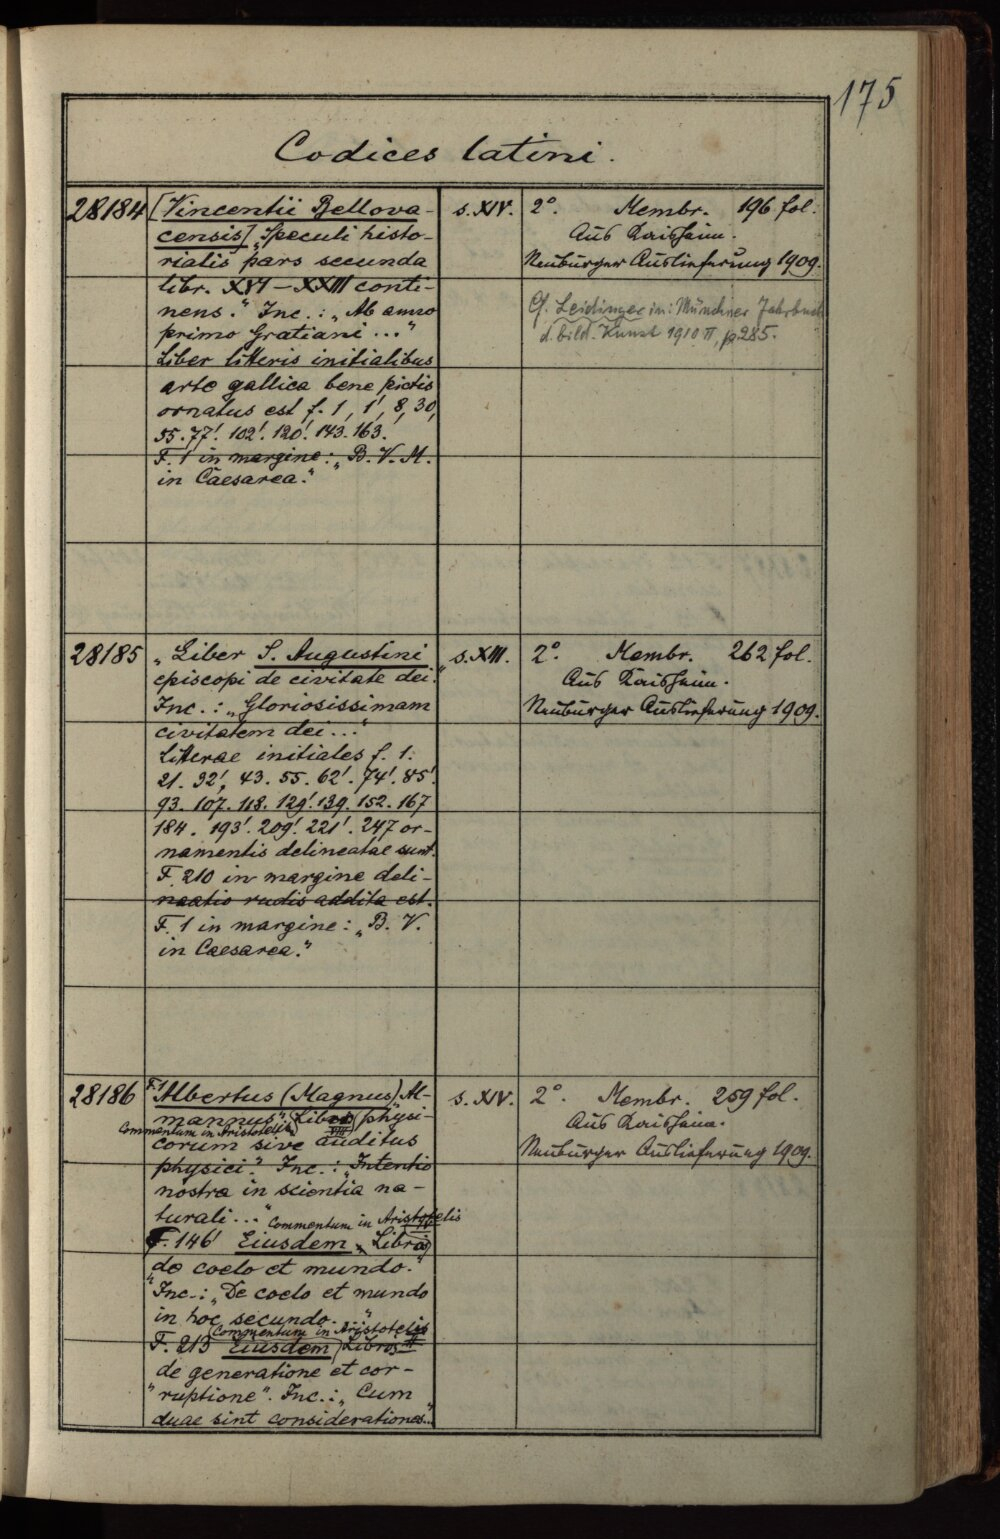 175
Codices latini.
28184 [Vincentii Bellova- s. XIV. 2°. Membr. 196 fol.
censis] „Speculi histo- Aus Kaisheim.
rialis pars secunda Neuburger Auslieferung 1909.
libr. XVI–XXIII conti-
nens.“ Inc.: „Ab anno Cf. Leidinger in: Münchner Jahrbuch
primo Gratiani ...“ d. bild. Kunst 1910 II, p. 285.
Liber litteris initialibus
arte gallica bene pictis
ornatus est f. 1, 1', 8, 30,
55. 77'. 102'. 120'. 143. 163.
F. 1 in margine: „B. V. M.
in Caesarea.“
28185 „Liber S. Augustini s. XIII. 2°. Membr. 262 fol.
episcopi de civitate dei.“ Aus Kaisheim.
Inc.: „Gloriosissimam Neuburger Auslieferung 1909.
civitatem dei ...“
Litterae initiales f. 1.
21. 32', 43. 55. 62'. 74'. 85'.
93. 107. 118. 129'. 139. 152. 167
184. 193'. 209'. 221'. 247 or-
namentis delineatae sunt.
F. 210 in margine deli-
neatio rudis addita est.
F. 1 in margine: „B. V.
in Caesarea.“
28186 F. 1 Albertus (Magnus) „Al- s. XIV. 2°. Membr. 259 fol.
mannus“, Libros VIII physi- Aus Kaisheim.
Commentum in Aristotelis
corum sive auditus Neuburger Auslieferung 1909.
physici.“ Inc.: „Intentio
nostra in scientia na-
turali ...“
Commentum in Aristotelis
F. 146' Eiusdem „Libros
de coelo et mundo.“
Inc.: „De coelo et mundo
in hoc secundo ...“
Commentum in Aristotelis
F. 213 Eiusdem Libros II
de generatione et cor-
ruptione“. Inc.: „Cum
duae sint considerationes..“